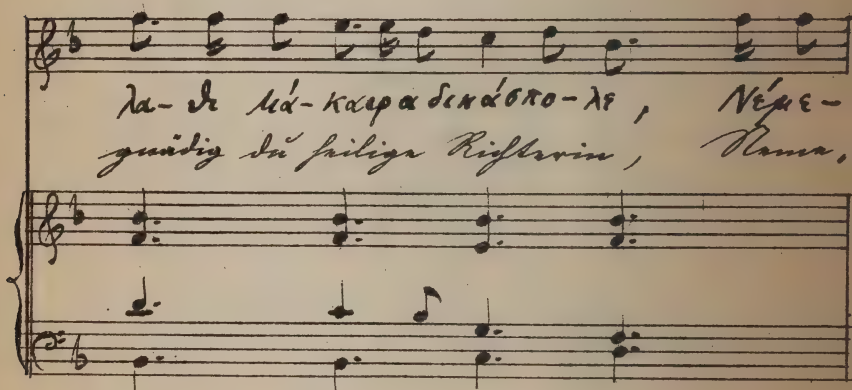 λα-θι μά-καιρα δικάσπο-λε, Νέμε-
gnädig du heilige Richterin, Neme,